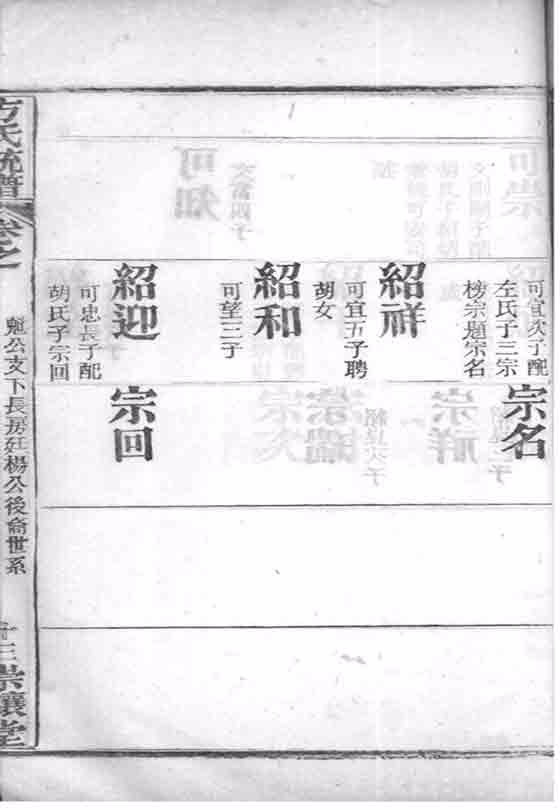 可宜次子配
左氏子三宗
榜宗題宗名
宗名
紹祥
可宜五子聘
胡女
紹和
可望三子
紹迎
可忠長子配
胡氏子宗回
宗回
方氏統譜
卷之
公支下長房廷楊公後裔世系
十三
崇讓堂